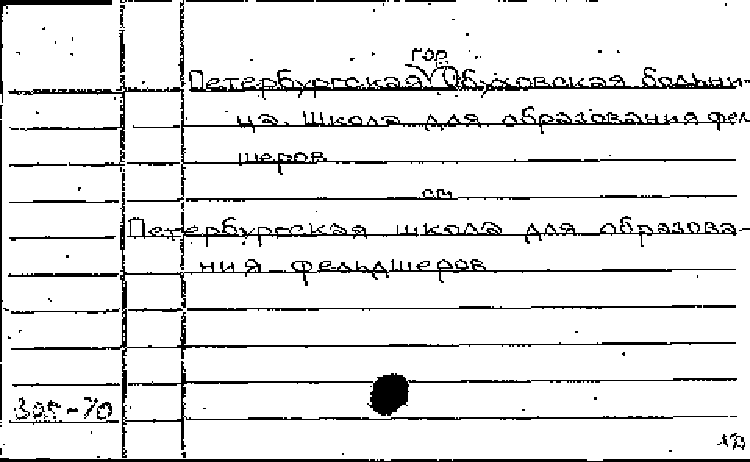 гор
Петербургская Обуховская больни-
ца. Школа для образования фел
шеров
см
Петербургская школа для образова-
ния фельдшеров
395-70